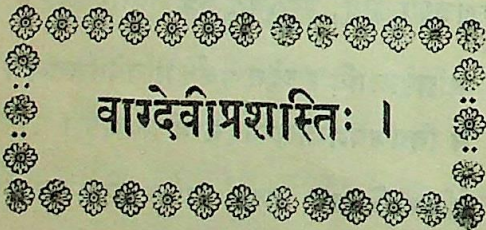 वाग्देवीप्रशस्तिः ।